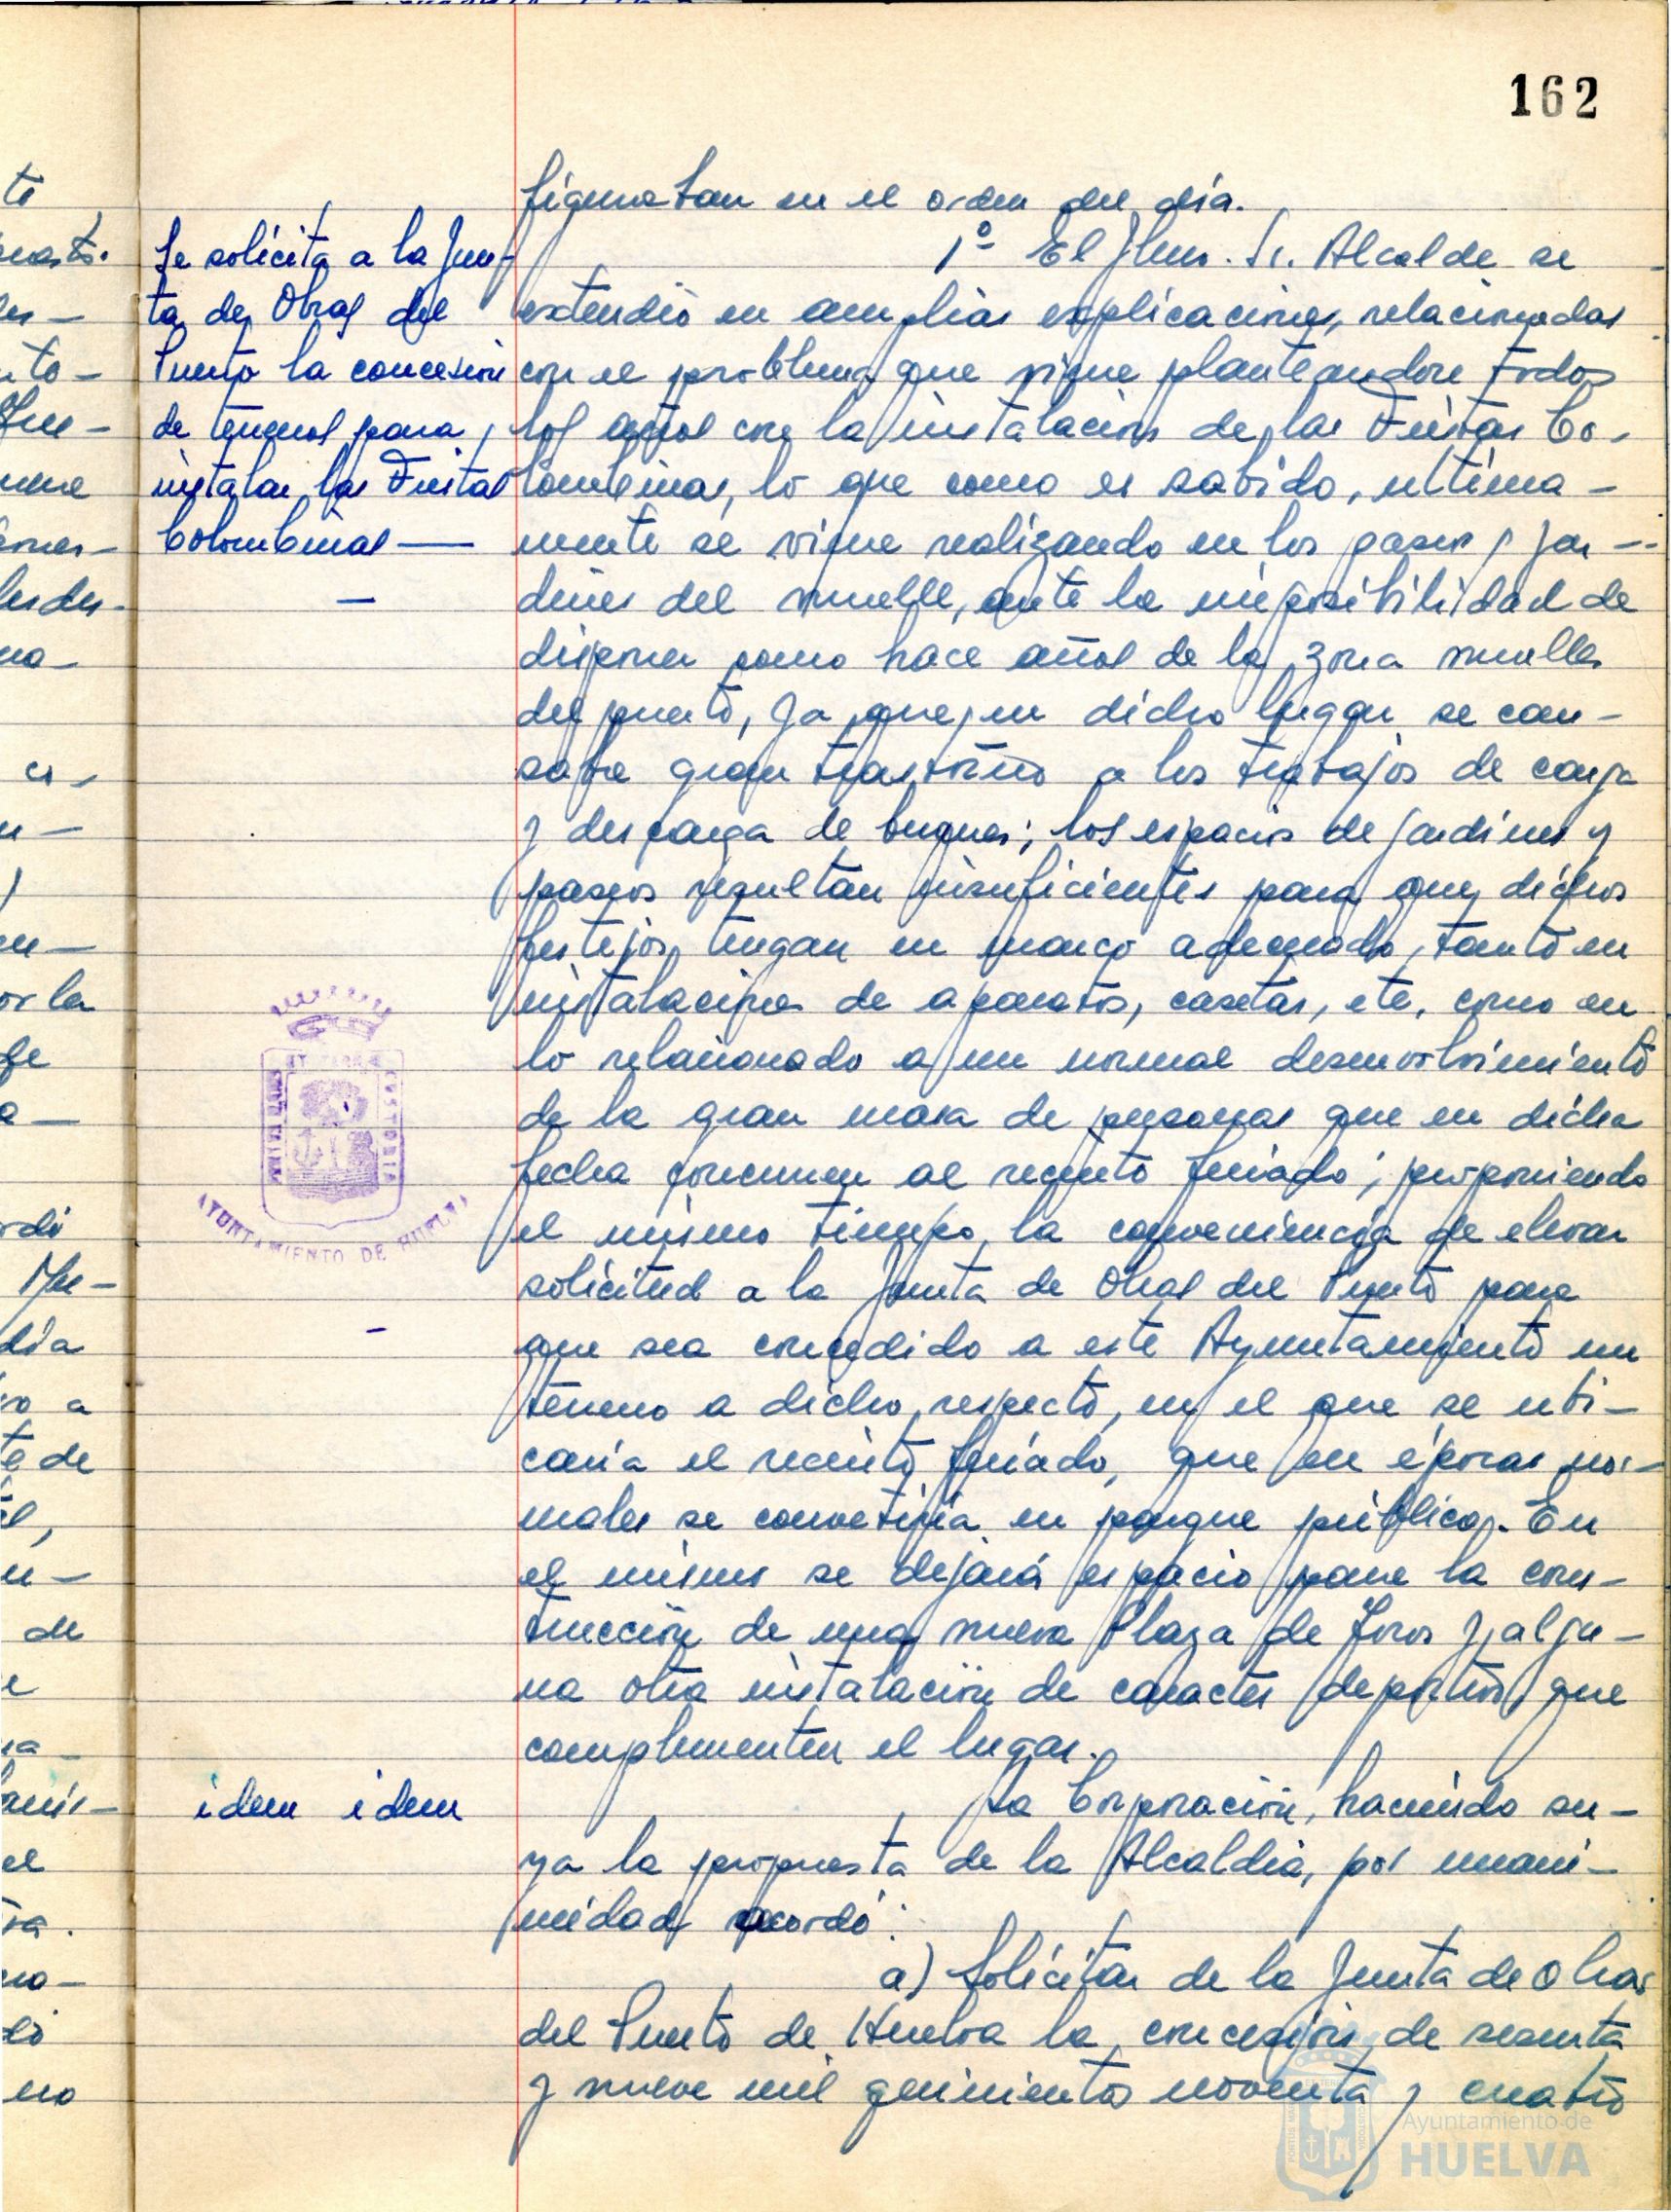 162
figuraban en el orden del día.
Se solicita a la Jun-
ta de Obras del
Puerto la concesión
de terrenos para
instalar las Fiestas
Colombinas —
1º El Ilmo. Sr. Alcalde se
extendió en amplias explicaciones, relacionadas
con el problema que viene planteandose todos
los años con la instalación de las Fiestas Co-
lombinas, lo que como es sabido, ultima-
mente se viene realizando en los paseos y jar-
dines del muelle, ante la imposibilidad de
disponer como hace años de la zona muelles
del puerto, ya que en dicho lugar se cau-
saba gran trastorno a los trabajos de carga
y descarga de buques; los espacios de jardines y
paseos resultan insuficientes para que dichos
festejos tengan un marco adecuado, tanto en
instalaciones de aparatos, casetas, etc, como en
lo relacionado a un normal desenvolvimiento
de la gran masa de personas que en dicha
fecha concurren al recinto feriado; proponiendo
el mismo tiempo, la conveniencia de elevar
solicitud a la Junta de Obras del Puerto para
que sea concedido a este Ayuntamiento un
terreno a dicho respecto, en el que se ubi-
caria el recinto feriado, que en épocas nor-
males se convetiria en parque público. En
el mismo se dejará espacio para la cons-
trucción de una nueva Plaza de Toros y algu-
na otra instalación de caracter deportivo que
complementen el lugar.
idem idem
La Corporación, haciendo su-
ya la propuesta de la Alcaldía, por unani-
midad acordó:
a) Solicitar de la Junta de Obras
del Puerto de Huelva la concesión de sesenta
y nueve mil quinientos noventa y cuatro
AYUNTAMIENTO DE HUELVA
Ayuntamiento de
HUELVA